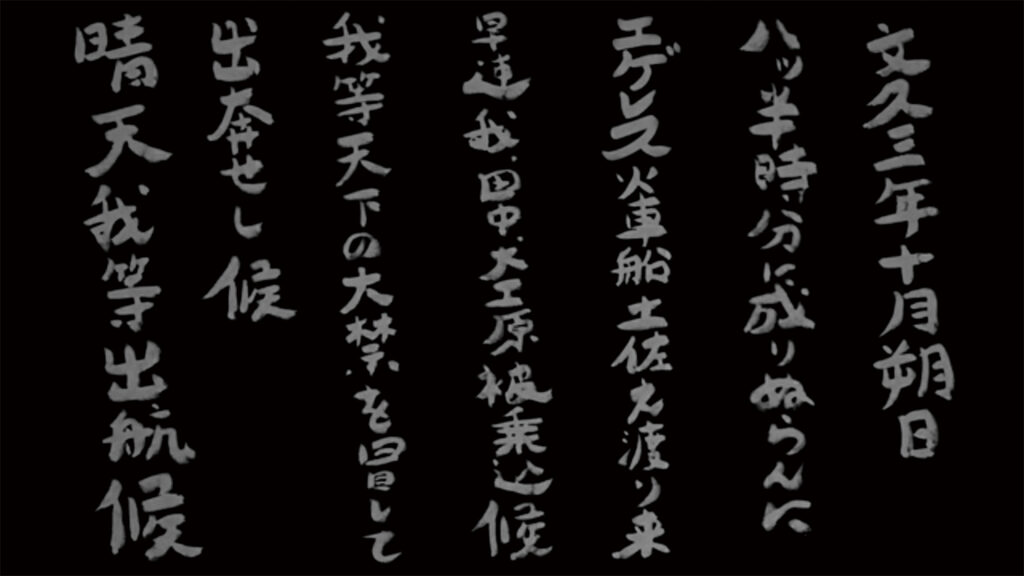 文久三年十月朔日
ハッ半時分に成りぬらんに
エゲレス火車船土佐え渡り来
早速我、田中、大工原被乗込候
我等天下の大禁を冒して
出奔せし候
晴天我等出航候